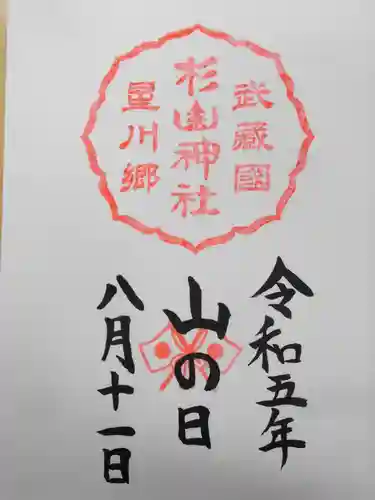 武蔵國
杉山神社
星川郷
令和五年
山の日
八月十一日